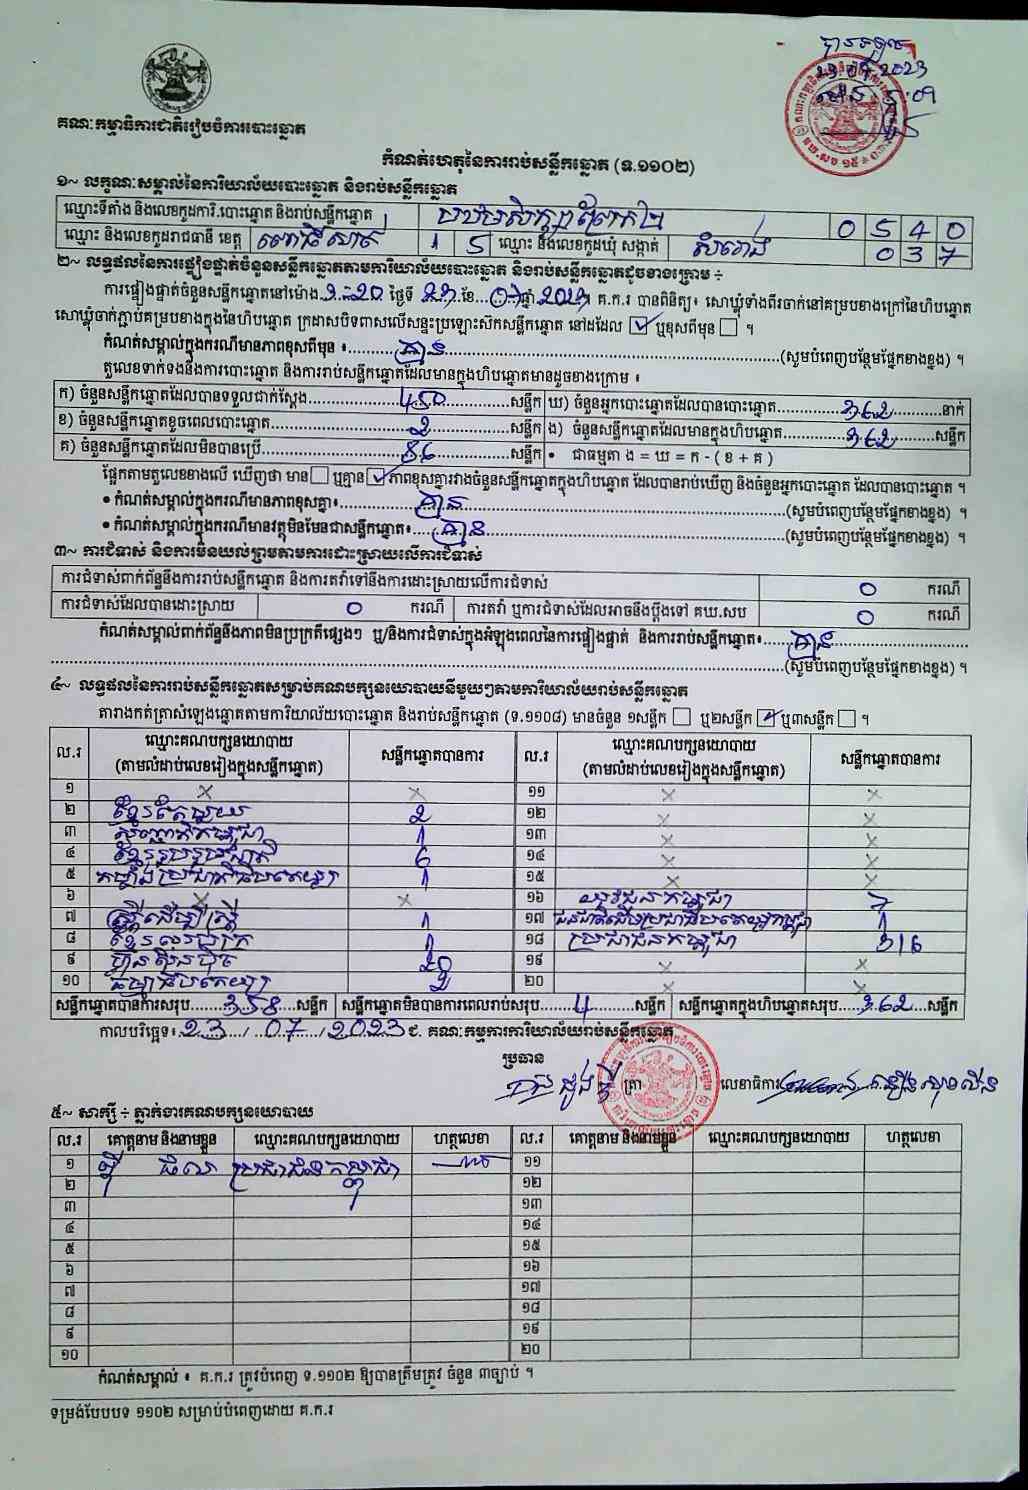 បានទទួល
23.07.2023
គណៈកម្មាធិការជាតិរៀបចំការបោះឆ្នោត
កំណត់ហេតុនៃការរាប់សន្លឹកឆ្នោត (ទ.១១០២)
១~ លក្ខណៈសម្គាល់នៃការិយាល័យបោះឆ្នោត និងរាប់សន្លឹកឆ្នោត
ឈ្មោះទីតាំង និងលេខកូដការិ.បោះឆ្នោត និងរាប់សន្លឹកឆ្នោត 0 5 4 0
ឈ្មោះ និងលេខកូដរាជធានី ខេត្ត ពោធិ៍សាត់ 1 5 ឈ្មោះ និងលេខកូដឃុំ សង្កាត់ សំរោង 0 3 7
២~ លទ្ធផលនៃការផ្ទៀងផ្ទាត់ចំនួនសន្លឹកឆ្នោតតាមការិយាល័យបោះឆ្នោត និងរាប់សន្លឹកឆ្នោតដូចខាងក្រោម ÷
ការផ្ទៀងផ្ទាត់ចំនួនសន្លឹកឆ្នោតនៅម៉ោង 3:20 ថ្ងៃទី 23 ខែ 07 ឆ្នាំ 2023 គ.ក.រ បានពិនិត្យ៖ សោឃ្លុំទាំងពីរចាក់នៅគម្របខាងក្រៅនៃហិបឆ្នោត
សោឃ្លុំចាក់ភ្ជាប់គម្របខាងក្នុងនៃហិបឆ្នោត ក្រដាសបិទពាសលើសន្ទះប្រឡោះស៊កសន្លឹកឆ្នោត នៅដដែល ☑ ឬខុសពីមុន ☐ ។
កំណត់សម្គាល់ក្នុងករណីមានភាពខុសពីមុន ៖ គ្មាន (សូមបំពេញបន្ថែមផ្នែកខាងខ្នង) ។
តួលេខទាក់ទងនឹងការបោះឆ្នោត និងការរាប់សន្លឹកឆ្នោតដែលមានក្នុងហិបឆ្នោតមានដូចខាងក្រោម ៖
ក) ចំនួនសន្លឹកឆ្នោតដែលបានទទួលជាក់ស្តែង 450 សន្លឹក ឃ) ចំនួនអ្នកបោះឆ្នោតដែលបានបោះឆ្នោត 362 នាក់
ខ) ចំនួនសន្លឹកឆ្នោតខូចពេលបោះឆ្នោត 2 សន្លឹក ង) ចំនួនសន្លឹកឆ្នោតដែលមានក្នុងហិបឆ្នោត 362 សន្លឹក
គ) ចំនួនសន្លឹកឆ្នោតដែលមិនបានប្រើ 86 សន្លឹក • ជាធម្មតា ង = ឃ = ក - ( ខ + គ )
ផ្អែកតាមតួលេខខាងលើ ឃើញថា មាន ☐ ឬគ្មាន ☑ ភាពខុសគ្នារវាងចំនួនសន្លឹកឆ្នោតក្នុងហិបឆ្នោត ដែលបានរាប់ឃើញ និងចំនួនអ្នកបោះឆ្នោត ដែលបានបោះឆ្នោត ។
• កំណត់សម្គាល់ក្នុងករណីមានភាពខុសគ្នា៖ គ្មាន (សូមបំពេញបន្ថែមផ្នែកខាងខ្នង) ។
• កំណត់សម្គាល់ក្នុងករណីមានវត្ថុមិនមែនជាសន្លឹកឆ្នោត៖ គ្មាន (សូមបំពេញបន្ថែមផ្នែកខាងខ្នង) ។
៣~ ការជំទាស់ និងការមិនយល់ព្រមតាមការដោះស្រាយលើការជំទាស់
ការជំទាស់ពាក់ព័ន្ធនឹងការរាប់សន្លឹកឆ្នោត និងការតវ៉ាទៅនឹងការដោះស្រាយលើការជំទាស់ 0 ករណី
ការជំទាស់ដែលបានដោះស្រាយ 0 ករណី ការតវ៉ា ឬការជំទាស់ដែលអាចនឹងប្តឹងទៅ គឃ.សប 0 ករណី
កំណត់សម្គាល់ពាក់ព័ន្ធនឹងភាពមិនប្រក្រតីផ្សេងៗ ឬ/និងការជំទាស់ក្នុងអំឡុងពេលនៃការផ្ទៀងផ្ទាត់ និងការរាប់សន្លឹកឆ្នោត៖ គ្មាន
(សូមបំពេញបន្ថែមផ្នែកខាងខ្នង) ។
៤~ លទ្ធផលនៃការរាប់សន្លឹកឆ្នោតសម្រាប់គណបក្សនយោបាយនីមួយៗតាមការិយាល័យរាប់សន្លឹកឆ្នោត
តារាងកត់ត្រាសំឡេងឆ្នោតតាមការិយាល័យបោះឆ្នោត និងរាប់សន្លឹកឆ្នោត (ទ.១១០៨) មានចំនួន ១សន្លឹក ☐ ឬ២សន្លឹក ☑ ឬ៣សន្លឹក ☐ ។
ល.រ ឈ្មោះគណបក្សនយោបាយ សន្លឹកឆ្នោតបានការ ល.រ ឈ្មោះគណបក្សនយោបាយ សន្លឹកឆ្នោតបានការ
(តាមលំដាប់លេខរៀងក្នុងសន្លឹកឆ្នោត) (តាមលំដាប់លេខរៀងក្នុងសន្លឹកឆ្នោត)
១ × × ១១ × ×
២ ខ្មែរតែមួយ 2 ១២ × ×
៣ 1 ១៣ × ×
៤ ខ្មែររួបរួមជាតិ 6 ១៤ × ×
៥ កម្លាំងប្រជាធិបតេយ្យ 1 ១៥ × ×
៦ × × ១៦ យុវជនកម្ពុជា 7
៧ ស្ត្រីដើម្បីស្ត្រី 1 ១៧ ជនជាតិដើមប្រជាធិបតេយ្យកម្ពុជា 1
៨ 1 ១៨ ប្រជាជនកម្ពុជា 316
៩ ហ្វ៊ុនស៊ិនប៉ិច 20 ១៩ × ×
១០ ធម្មាធិបតេយ្យ 2 ២០ × ×
សន្លឹកឆ្នោតបានការសរុប 358 សន្លឹក សន្លឹកឆ្នោតមិនបានការពេលរាប់សរុប 4 សន្លឹក សន្លឹកឆ្នោតក្នុងហិបឆ្នោតសរុប 362 សន្លឹក
កាលបរិច្ឆេទ៖ 23 / 07 / 2023 ជ. គណៈកម្មការការិយាល័យរាប់សន្លឹកឆ្នោត
ប្រធាន
ត្រា លេខាធិការ
៥~ សាក្សី ÷ ភ្នាក់ងារគណបក្សនយោបាយ
ល.រ គោត្តនាម និងនាមខ្លួន ឈ្មោះគណបក្សនយោបាយ ហត្ថលេខា ល.រ គោត្តនាម និងនាមខ្លួន ឈ្មោះគណបក្សនយោបាយ ហត្ថលេខា
១ ប្រជាជនកម្ពុជា ១១
២ ១២
៣ ១៣
៤ ១៤
៥ ១៥
៦ ១៦
៧ ១៧
៨ ១៨
៩ ១៩
១០ ២០
កំណត់សម្គាល់ ៖ គ.ក.រ ត្រូវបំពេញ ទ.១១០២ ឱ្យបានត្រឹមត្រូវ ចំនួន ៣ច្បាប់ ។
ទម្រង់បែបបទ ១១០២ សម្រាប់បំពេញដោយ គ.ក.រ